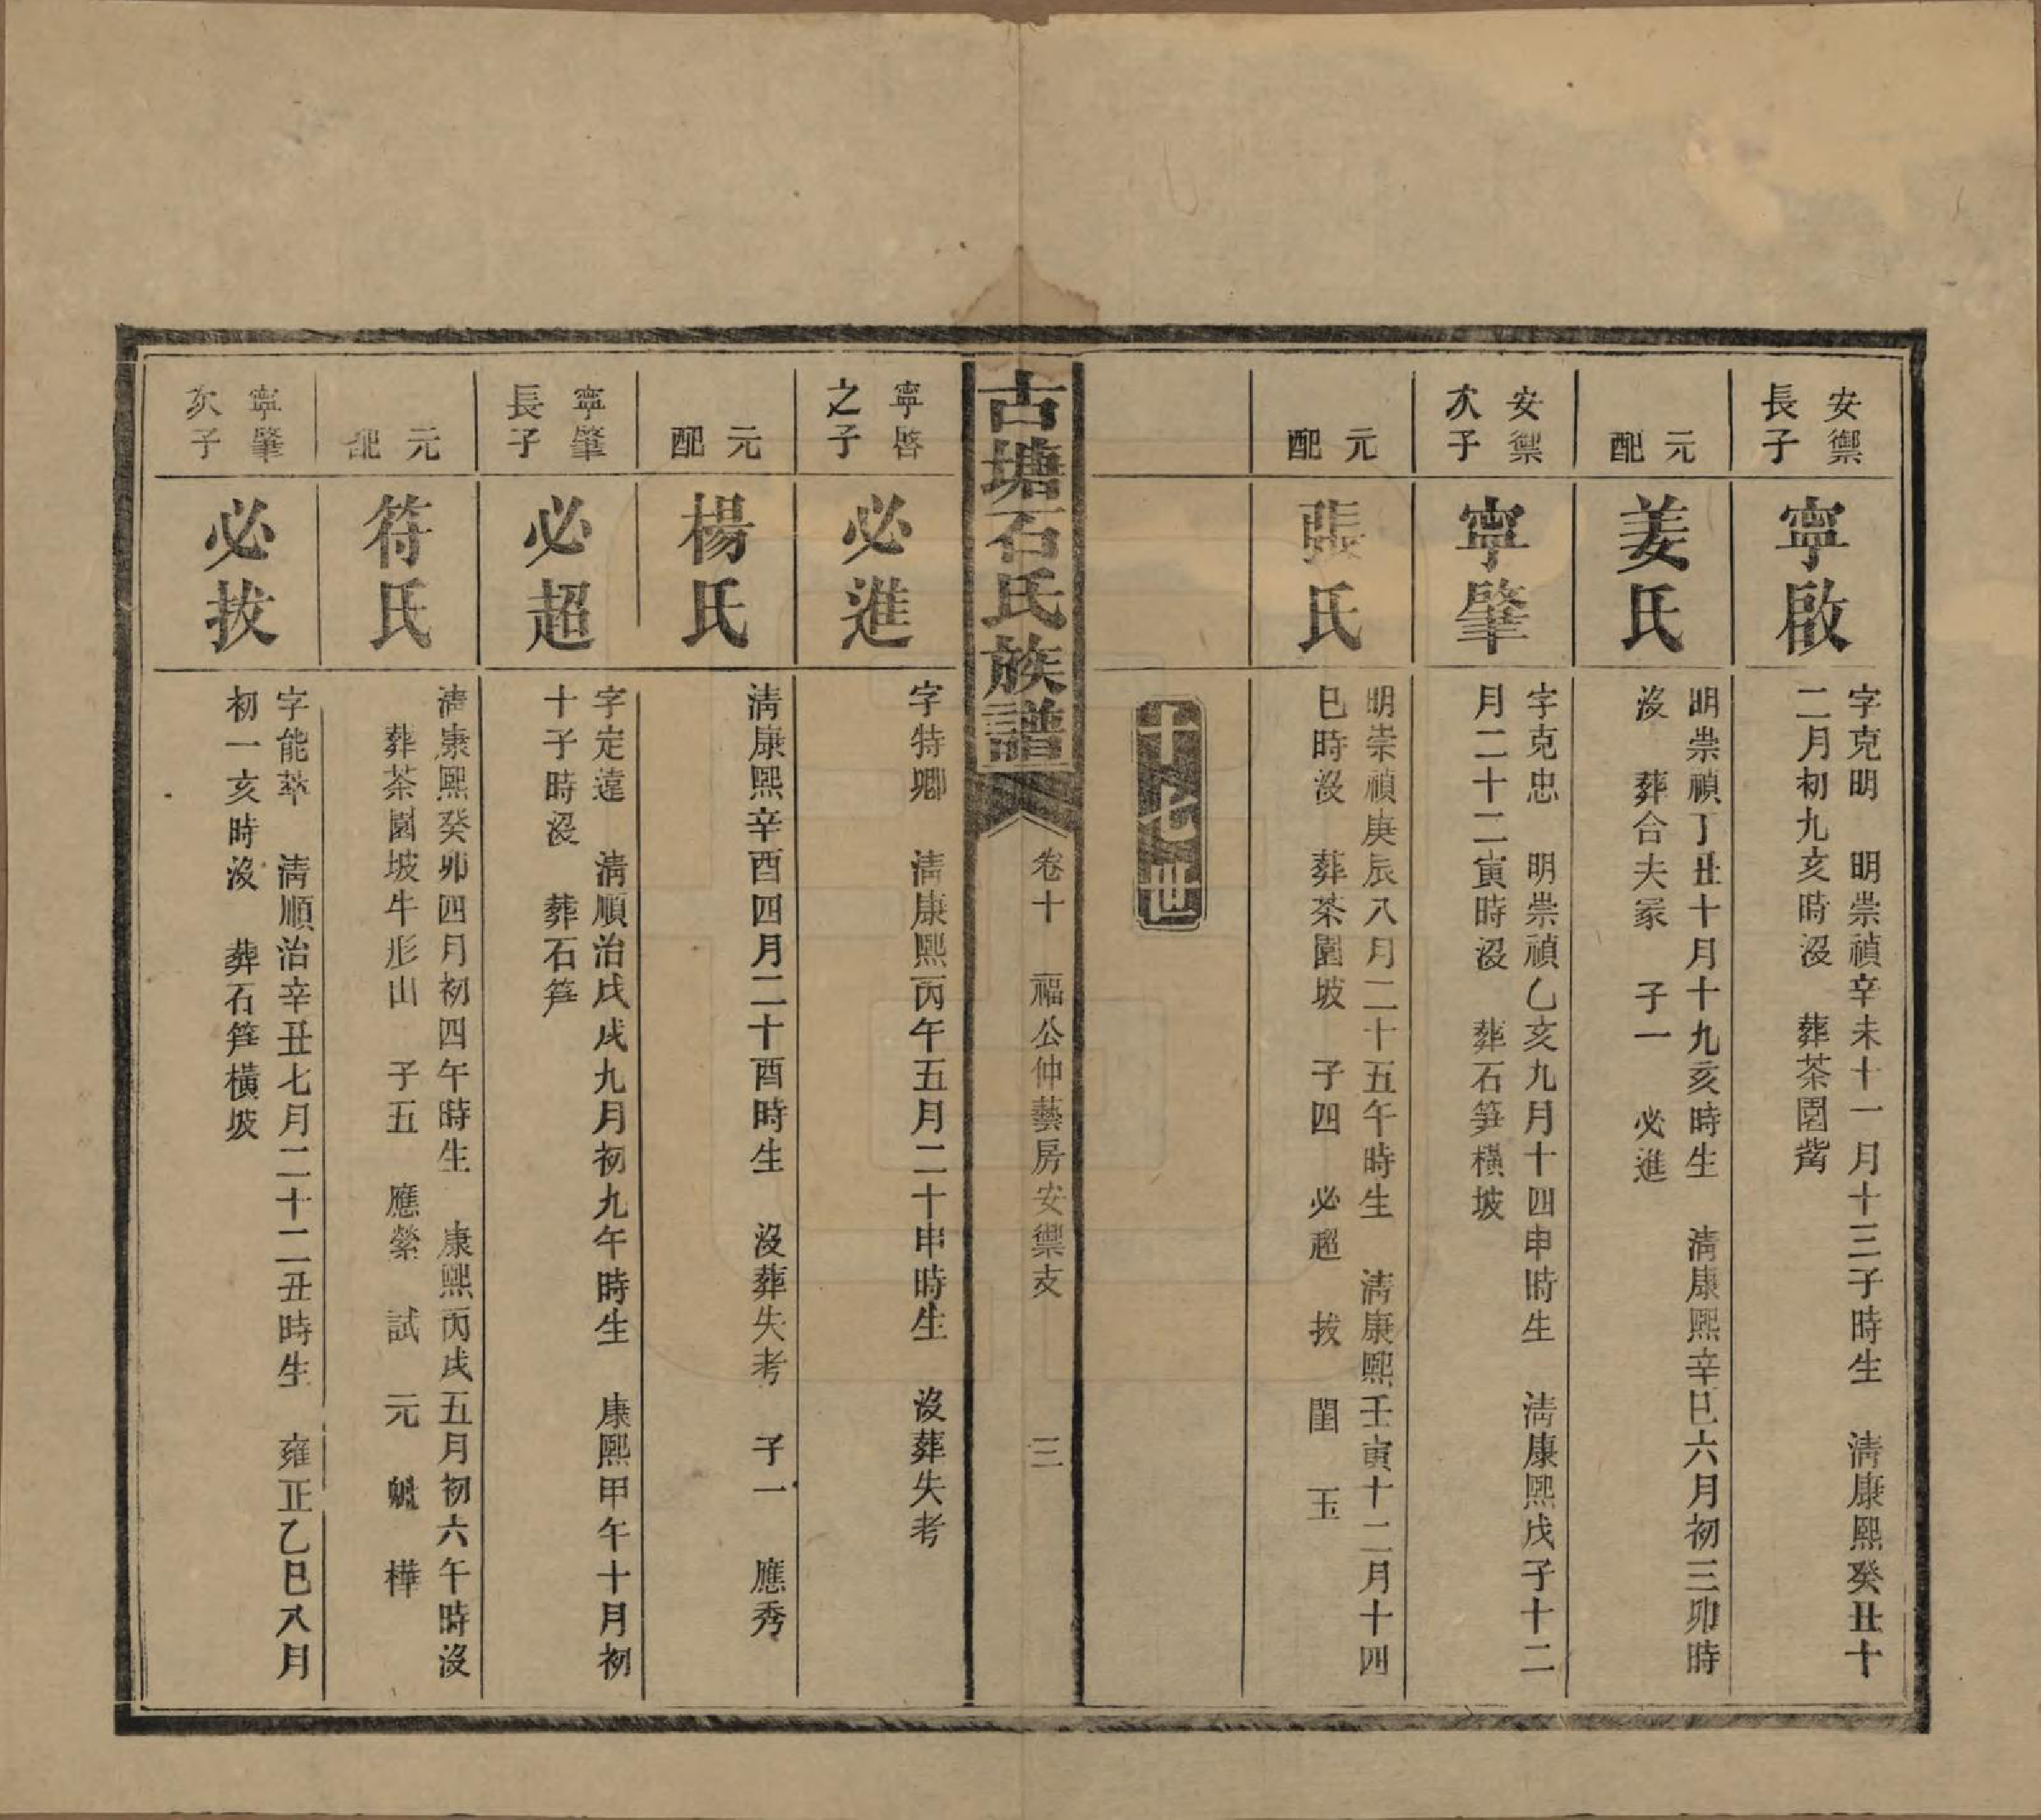 安禦
長子
寧啟
字克明　明崇禎辛未十一月十三子時生　淸康熙癸丑十
二月初九亥時沒　葬茶園嘴
元
配
姜氏
明崇禎丁丑十月十九亥時生　淸康熙辛巳六月初三卯時
沒　葬合夫冢　子一　必進
安禦
次子
寧肇
字克忠　明崇禎乙亥九月十四申時生　淸康熙戊子十二
月二十二寅時沒　葬石笋橫坡
元
配
張氏
明崇禎庚辰八月二十五午時生　淸康熙壬寅十二月十四
巳時沒　葬茶園坡　子四　必超　拔　閏　玉
十七世
古塘石氏族譜
卷十　福公仲藝房安禦支　三
寧啓
之子
必進
字特卿　淸康熙丙午五月二十申時生　沒葬失考
元
配
楊氏
淸康熙辛酉四月二十酉時生　沒葬失考　子一　應秀
寧肇
長子
必超
字定遠　淸順治戊戌九月初九午時生　康熙甲午十月初
十子時沒　葬石笋
元
配
符氏
淸康熙癸卯四月初四午時生　康熙丙戌五月初六午時沒
葬茶園坡牛形山　子五　應縈　試　元　魁　樺
寧肇
次子
必拔
字能萃　淸順治辛丑七月二十二丑時生　雍正乙巳八月
初一亥時沒　葬石笋橫坡